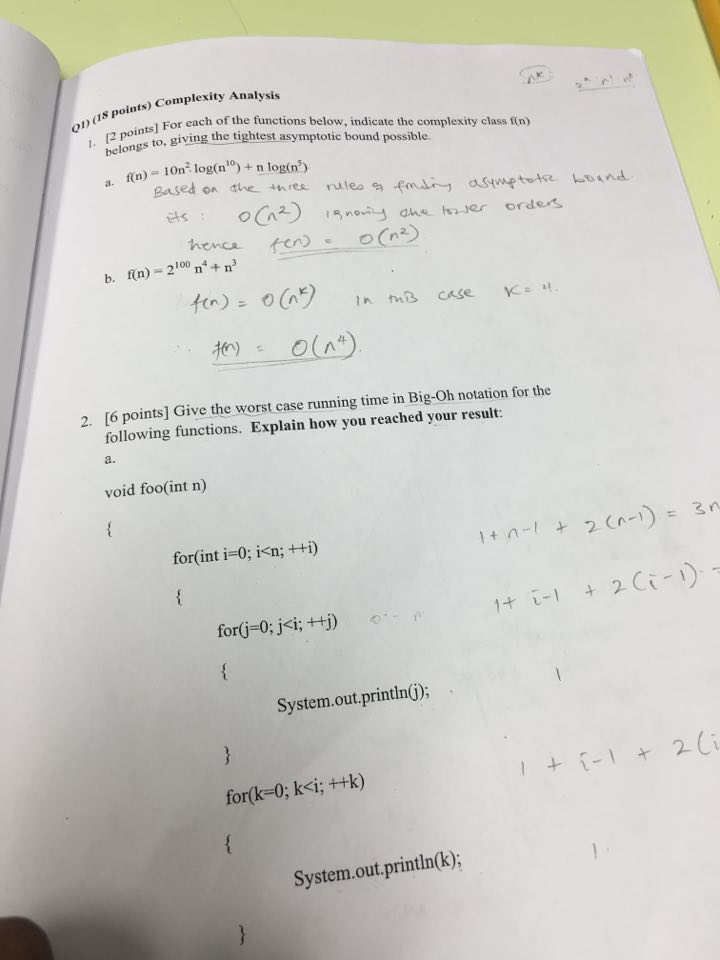 n^k
2^n n! n^n
Q1) (18 points) Complexity Analysis
1. [2 points] For each of the functions below, indicate the complexity class f(n)
belongs to, giving the tightest asymptotic bound possible.
a. f(n) = 10n². log(n¹⁰) + n log(n⁵)
Based on the three rules of finding asymptotic bound
its : O(n²) ignoring the lower orders
hence f(n) = O(n²)
b. f(n) = 2¹⁰⁰ n⁴ + n³
f(n) = O(n^k) in this case K = 4.
∴ f(n) = O(n⁴).
2. [6 points] Give the worst case running time in Big-Oh notation for the
following functions. Explain how you reached your result:
a.
void foo(int n)
{
for(int i=0; i<n; ++i) 1 + n-1 + 2(n-1) = 3n
{
for(j=0; j<i; ++j) 1+ i-1 + 2(i-1) =
{
System.out.println(j); 1
}
for(k=0; k<i; ++k) 1 + i-1 + 2(i
{
System.out.println(k); 1.
}